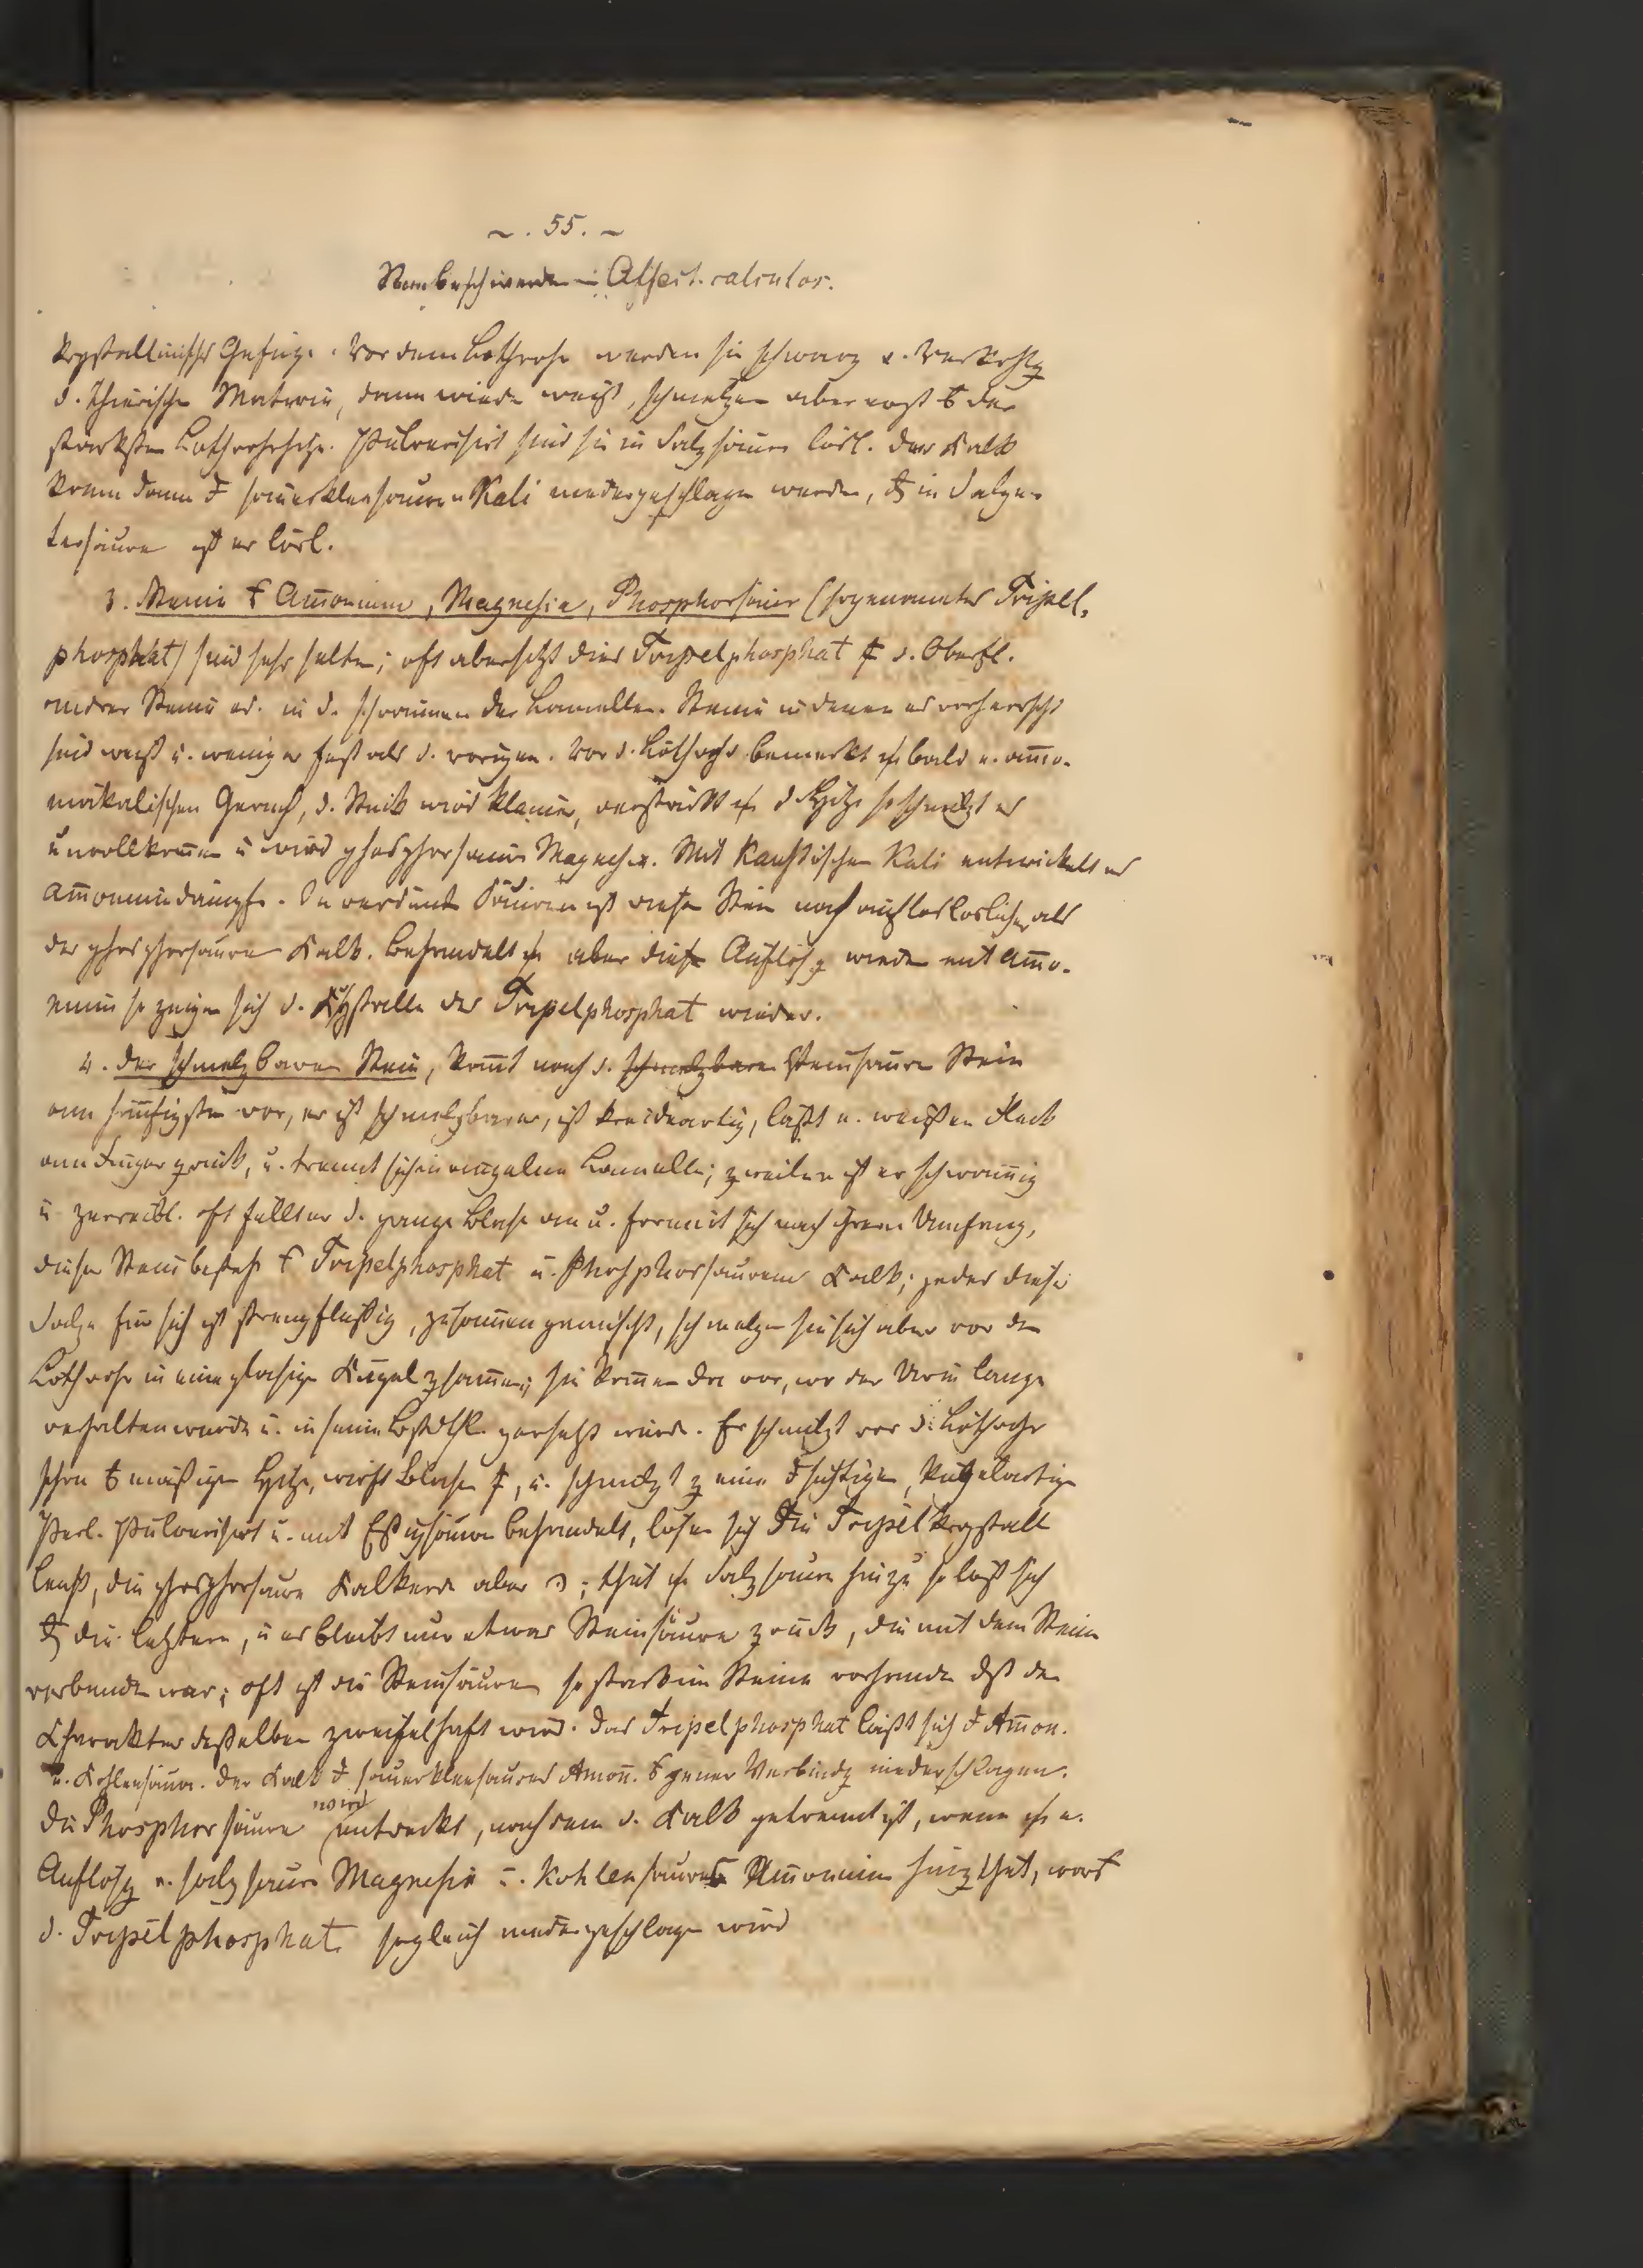 ~. 55. ~
Steinbeschwerden – Affect. calculos.
krystallinisches Gefüge. Vor dem Löthrohr werden sie schwarz v. Verkohlg
d. thierischen Materie, dann wieder weiß, schmelzen aber erst der
stärksten Löthrohrhitze. Pulverisirt sind sie in Salzsäure lösl. Der Kalk
kann dann sauerkleesauren Kali niedergeschlagen werden, in Salpe-
tersäure ist er lösl.
3. Steine Am̅onium, Magnesia, Phosphorsäure (sogenanntes Tripel-
phosphat) sind sehr selten; oft aber setzt dies Tripelphosphat d. Oberfl.
andrer Steine od. in d. der Lamellen. Steine in denen es vorherrscht
sind weiß u. weniger fest als d. vorigen. Vor d. Löthrohr bemerkt bald e. am̅o-
niakalischen Geruch, d. Stück wird kleiner, verstärkt d Hitze so schmilzt es
unvollkom̅en u wird phosphorsaure Magnesia. Mit kaustischen Kali entwickelt es
Am̅oniumdämpfe. In verdünnt Säuren ist dieser Stein noch auflöslicher als
der phosphorsaure Kalk. Behandelt aber diese Auflösg wieder mit Am̅o-
nium so zeigen sich d. Krystalle des Tripelphosphat wieder.
4. Der schmelzbare Stein, kom̅t nach d. schmelzbare steinsauren Stein
am häufigsten vor, er ist schmelzbarer, ist kreideartig, läßt e. weißen Fleck
am Finger zurück, u. trennt sich in einzelne Lamellen; zweilen ist er schwammig
u zerreibl. Oft füllt er d. ganze Blase an u. formirt sich nach ihrem Umfang,
dieser Stein besteht Tripelphosphat u. Phosphorsaurem Kalk; jedes dieser
Salze für sich ist strengflüßig, zusammen gemischt, schmelzen sie sich aber vor dem
Löthrohr in eine glasige Kugel zsam̅en; sie kom̅en da vor, wo der Urin lange
verhalten wurde u. in seine Bestdthl. zersetzt wurde. Er schmilzt vor d. Löthrohr
schon mäßiger Hitze, wirft Blasen, u. schmilzt z einer sichtigen, kugelartigen
Perl. Pulverisirt u. mit Eßigsäure behandelt, lösen sich die Tripelkrystall
leicht, die phosphorsaure Kalkerde aber; thut Salzsäure hinzu so löst sich
die letztere, u es bleibt nur etwas Steinsäure zrück, die mit dem Stein
verbunden war; oft ist die Steinsäure so stark im Steine vorhanden dß der
Charakter desselben zweifelhaft wird. Das Tripelphosphat läßt sich Am̅on.
u. Kohlensäure. Der Kalk sauerkleesaures Am̅on. jener Verbindg niederschlagen.
Die Phosphorsäure wird entdeckt, nachdem d. Kalk getrennt ist, wenn e.
Auflösg v. salzsaure Magnesia u. kohlensaures Am̅onium hinzthut, worauf
d. Tripelphosphat sogleich niedergeschlagen wird